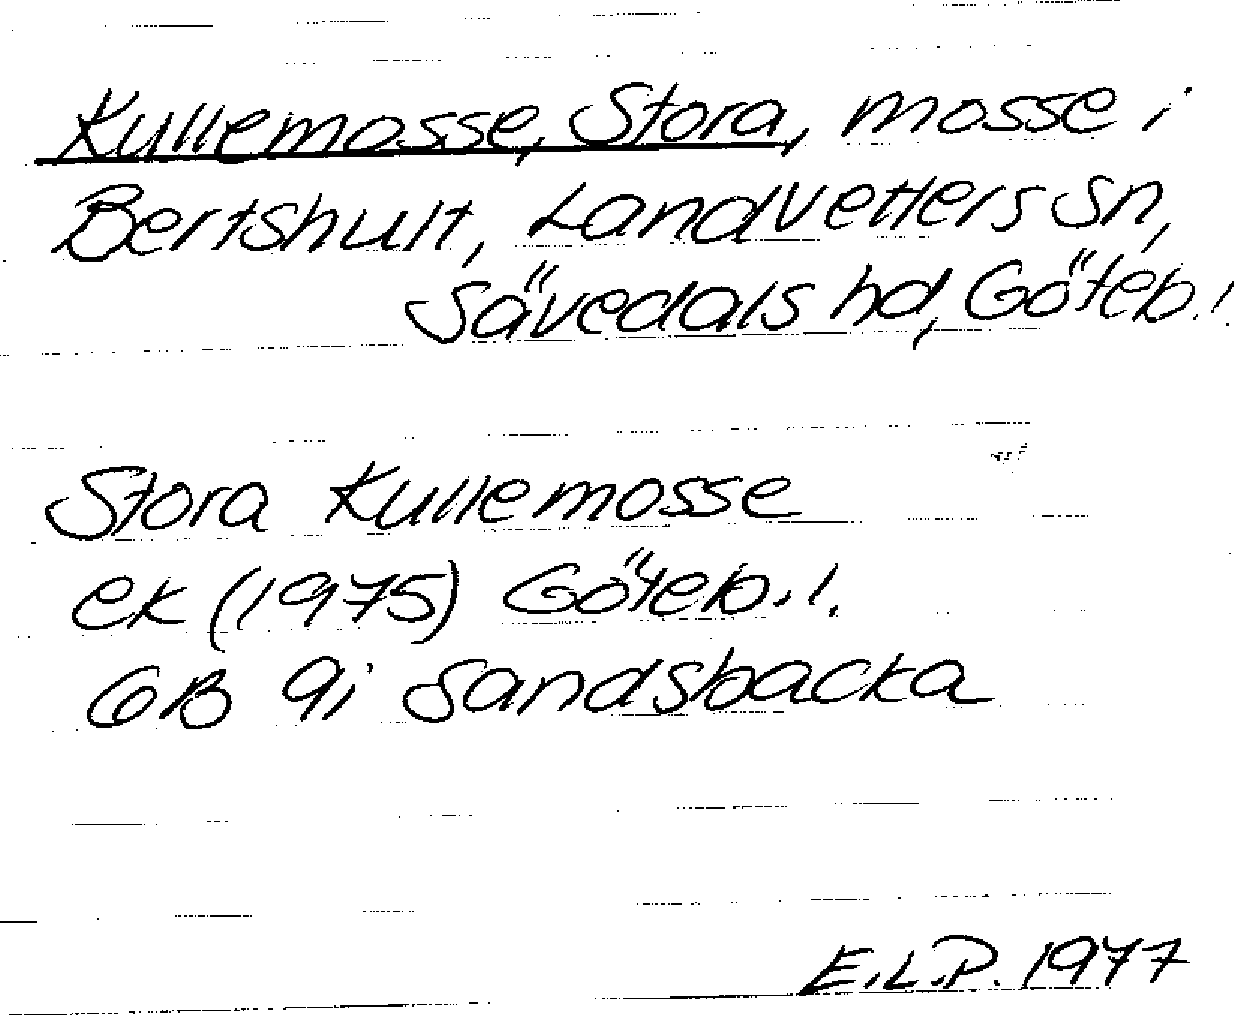 Kullemosse, Stora, mosse i
Bertshult, Landvetters sn,
Sävedals hd, Göteb. l.
Stora Kullemosse
ek (1975) Göteb. l.
GB 9i Sandsbacka
E.L.P. 1977